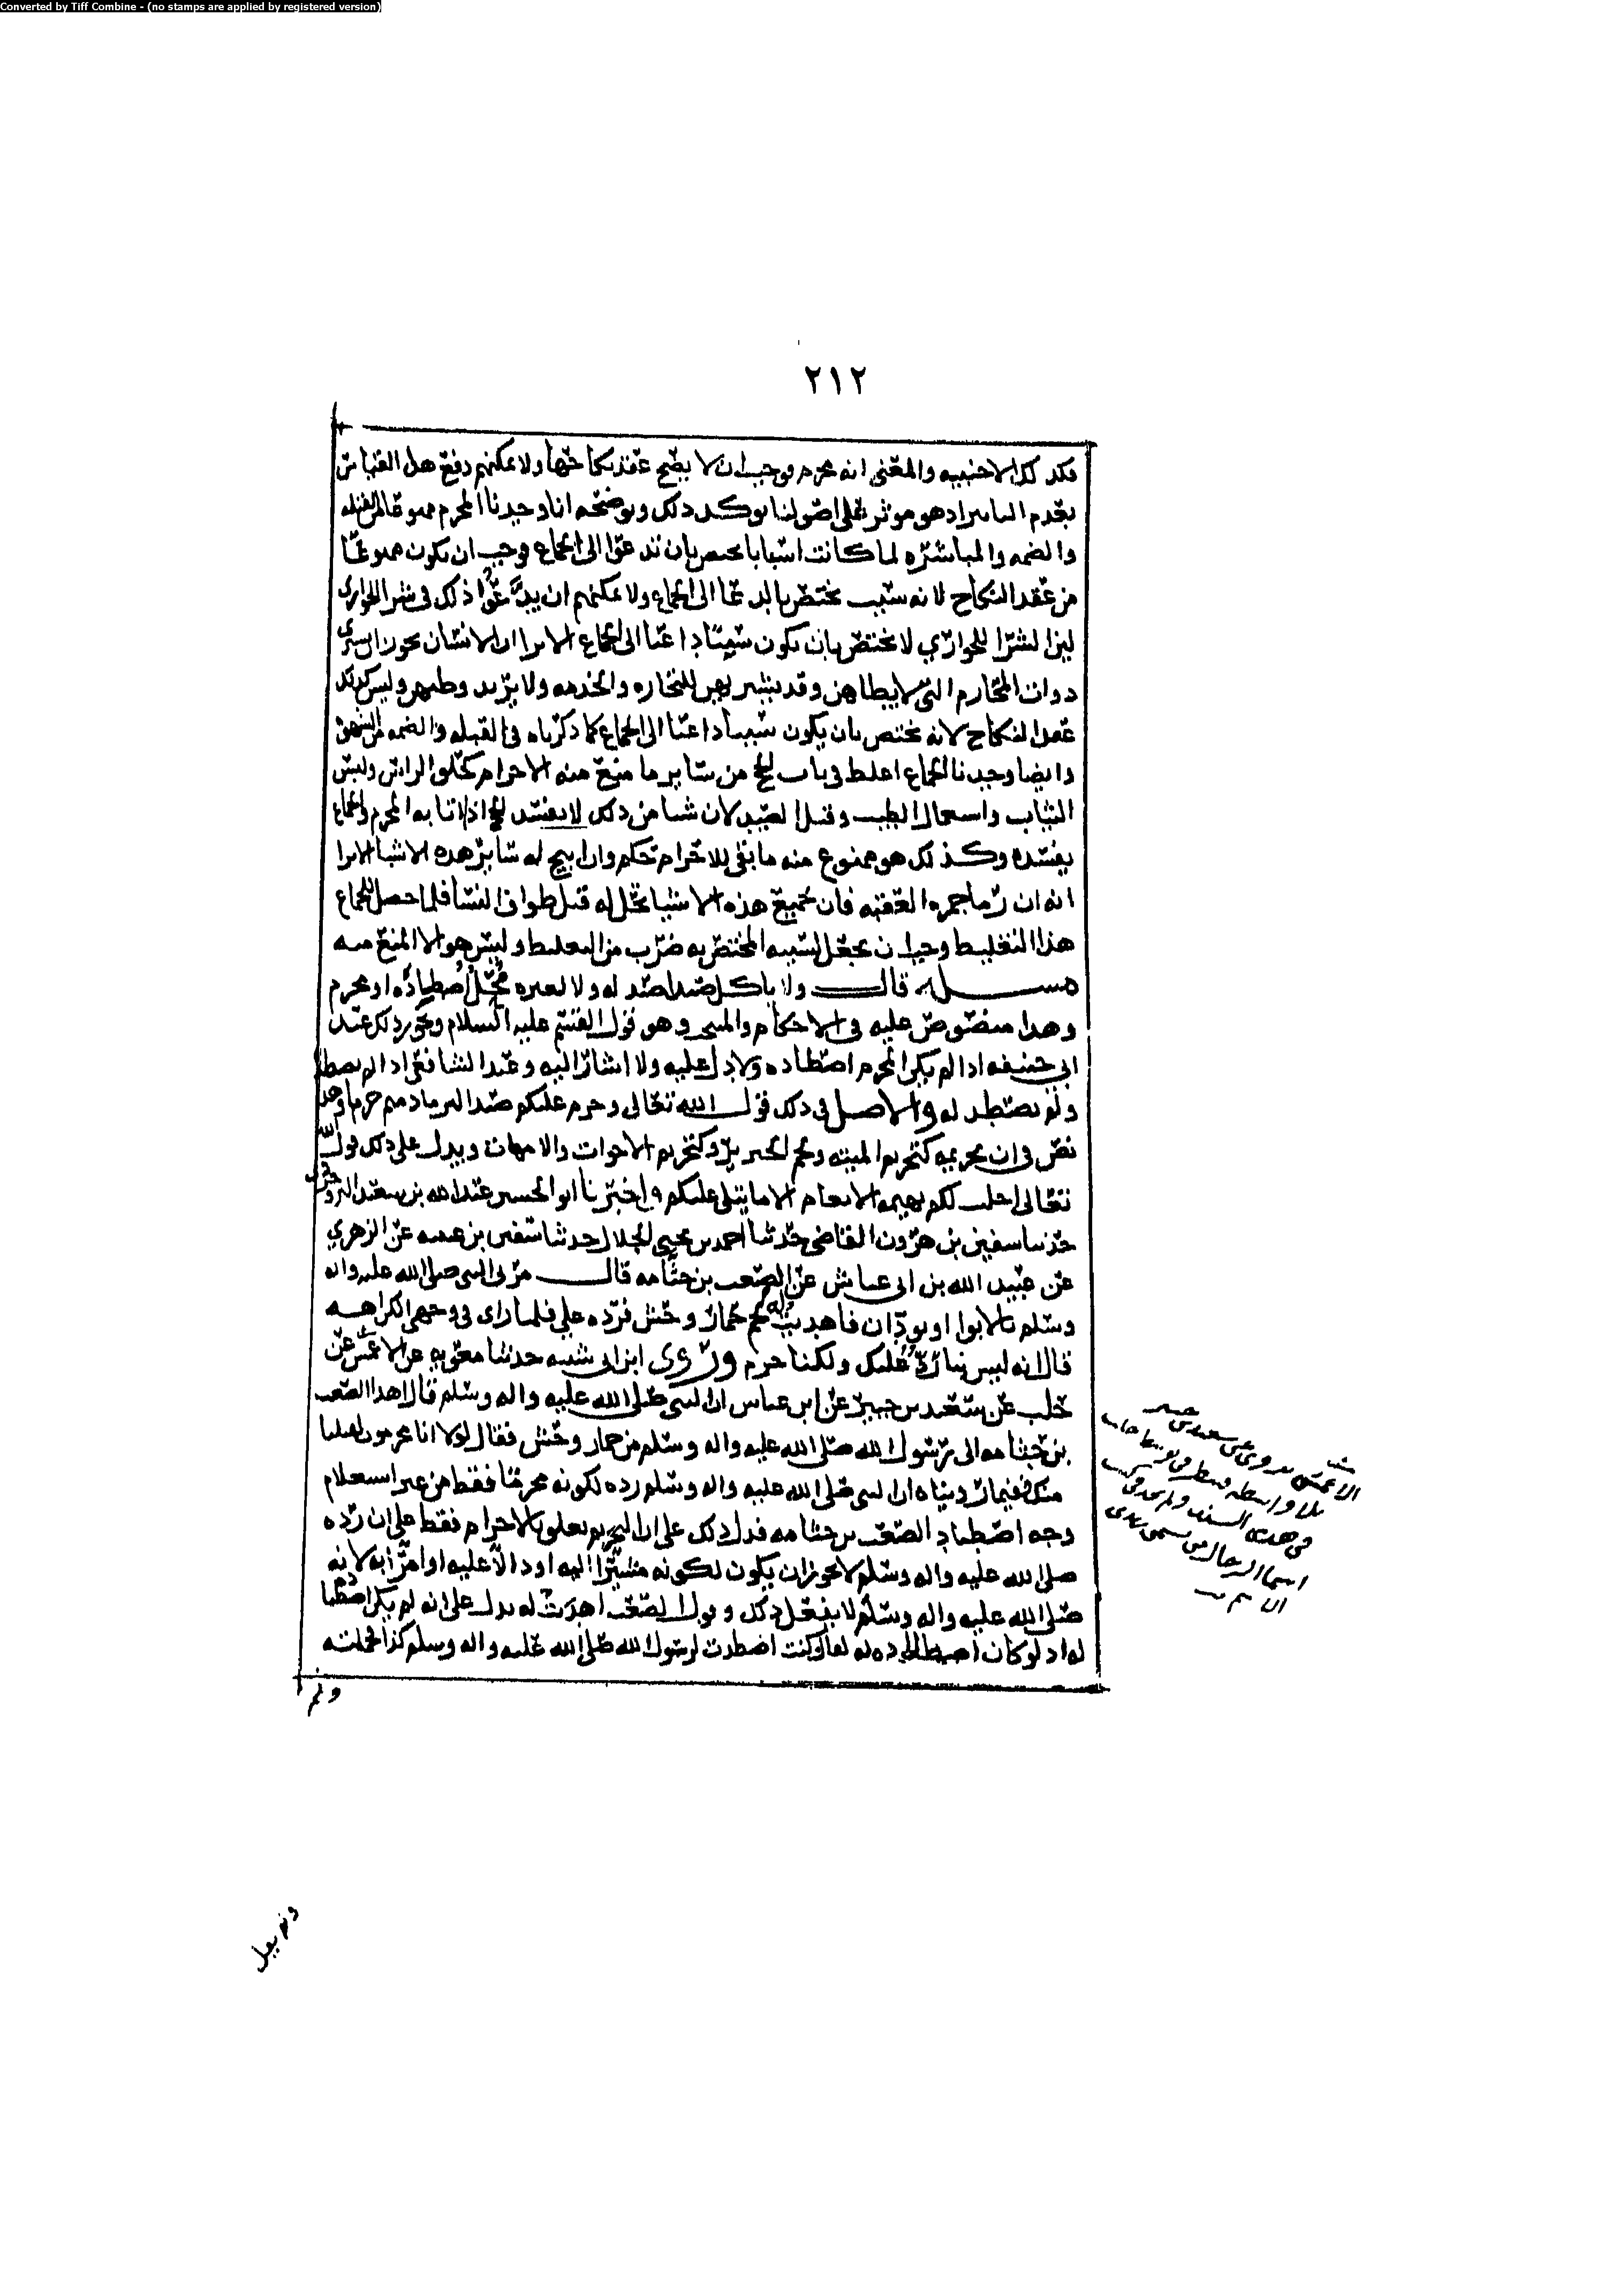 Converted by Tiff Combine - (no stamps are applied by registered version)
٢١٢
فكذلك الاجنبيه والمعنى انه محرم فوجب ان لا يصح عقد نكاحها ولا يمكنهم دفع هذا القياس
بعدم التاثير اذ هو موثر على اصولنا يوكد ذلك ويوضحه انا وجدنا المحرم ممنوعا من القبله
والضمه والمباشره لما كانت اسبابا تختص بان تدعوا الى الجماع فوجب ان يكون ممنوعا
من عقد النكاح لانه سبب يختص بالدعا الى الجماع ولا يمكنهم ان يدعوا ذلك في شرا الجواري
لان الشرا للجواري لا يختص بان يكون سببا داعيا الى الجماع الا ترا ان الانسان يجوز ان يشتري
ذوات المحارم التي لا يطاهن وقد يشتريهن للتجاره والخدمه ولا يريد وطيهن وليس كذلك
عقد النكاح لانه يختص بان يكون سببا داعيا الى الجماع كما ذكرناه في القبله والضمه من الشهوه
وايضا وجدنا الجماع اغلظ في باب الحج من ساير ما منع منه الاحرام كحلق الراس ولبس
الثياب واستعمال الطيب وقتل الصيد لان شيا من ذلك لا يفسد الحج اذا اتا به المحرم والجماع
يفسده وكذلك هو ممنوع منه ما بقي للاحرام حكم وان ابيح له ساير هذه الاشيا الا ترا
انه ان رما جمره العقبه فان جميع هذه الاشيا تحل له قبل طواف النسا فلما حصل للجماع
هذا التغليظ وجب ان يجعل لسببه المختص به ضرب من التغليظ وليس هو الا المنع منه
مسله قال ولا ياكل صيدا صيد له ولا لغيره محل اصطاده او محرم
وهذا منصوص عليه في الاحكام والمنتخب وهو قول القسم عليه السلام ويجوز ذلك عند
ابي حنيفه اذا لم يكن المحرم اصطاده ولا دل عليه ولا اشار اليه وعند الشافعي اذا لم يصطد
ولم يصطد له والاصل في ذلك قول الله تعالى وحرم عليكم صيد البر ما دمتم حرما وهذا
نص في ان تحريمه كتحريم الميته ولحم الخنزير وكتحريم الاخوات والامهات ويدل على ذلك قول الله
تعالى احلت لكم بهيمه الانعام الا ما يتلى عليكم واخبرنا ابو الحسين عبد الله بن سعيد البروجردي
حدثنا سفين بن هرون القاضي حدثنا احمد بن يحيى الجلال حدثنا سفين بن عيينه عن الزهري
عن عبيد الله بن ابي عباش عن الصعب بن جثامه قال مر بي النبي صلى الله عليه واله
وسلم بالابوا او بودان فاهديت له لحم حمار وحش فرده علي فلما راى في وجهي الكراهه
قال انه ليس بنا رد عليك ولكنا حرم وروى ابن ابي شيبه حدثنا معويه عن الاعمش عن
حلب عن سعيد بن جبير عن ابن عباس ان النبي صلى الله عليه واله وسلم قال اهدا الصعب
بن جثامه الى رسول الله صلى الله عليه واله وسلم من حمار وحش فقال لولا انا محرمون لقبلنا
منك ففيما روينا ان النبي صلى الله عليه واله وسلم رده لكونه محرما فقط من غير استعلام
وجه اصطياد الصعب بن جثامه فدل ذلك على ان التحريم تعلق بالاحرام فقط على ان رده
صلى الله عليه واله وسلم لا يجوز ان يكون لكونه مشيرا اليه او دالا عليه او امرا به لانه
صلى الله عليه واله وسلم لا يفعل ذلك وقول الصعب اهديت له يدل على انه لم يكن اصطاده
له اذ لو كان اصطاده له لقال وكنت اصطدت لرسول الله صلى الله عليه واله وسلم كذا فحملته
ولم
الاعمش يروي عن سعيد بن جبير
بلا واسطه
في هذا السند ولم يجد في كتب
اسما الرجال من يسمى بهذا
الاسم
ولم يقل